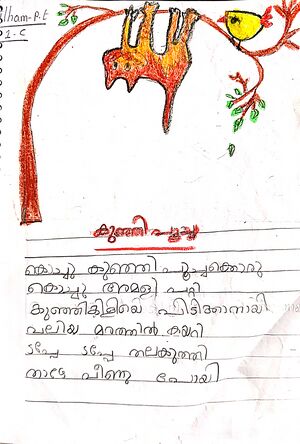 lham-P.t
1-C
കുഞ്ഞി പൂച്ച
കൊച്ചു കുഞ്ഞി പൂച്ചക്കൊരു
കൊച്ചു അമളി പറ്റി
കുഞ്ഞികിളിയെ പിടിക്കാനായി
വലിയ മരത്തിൽ കയറി
ടപ്പേ ടപ്പേ തലകുത്തി
താഴേ വീണു പോയി